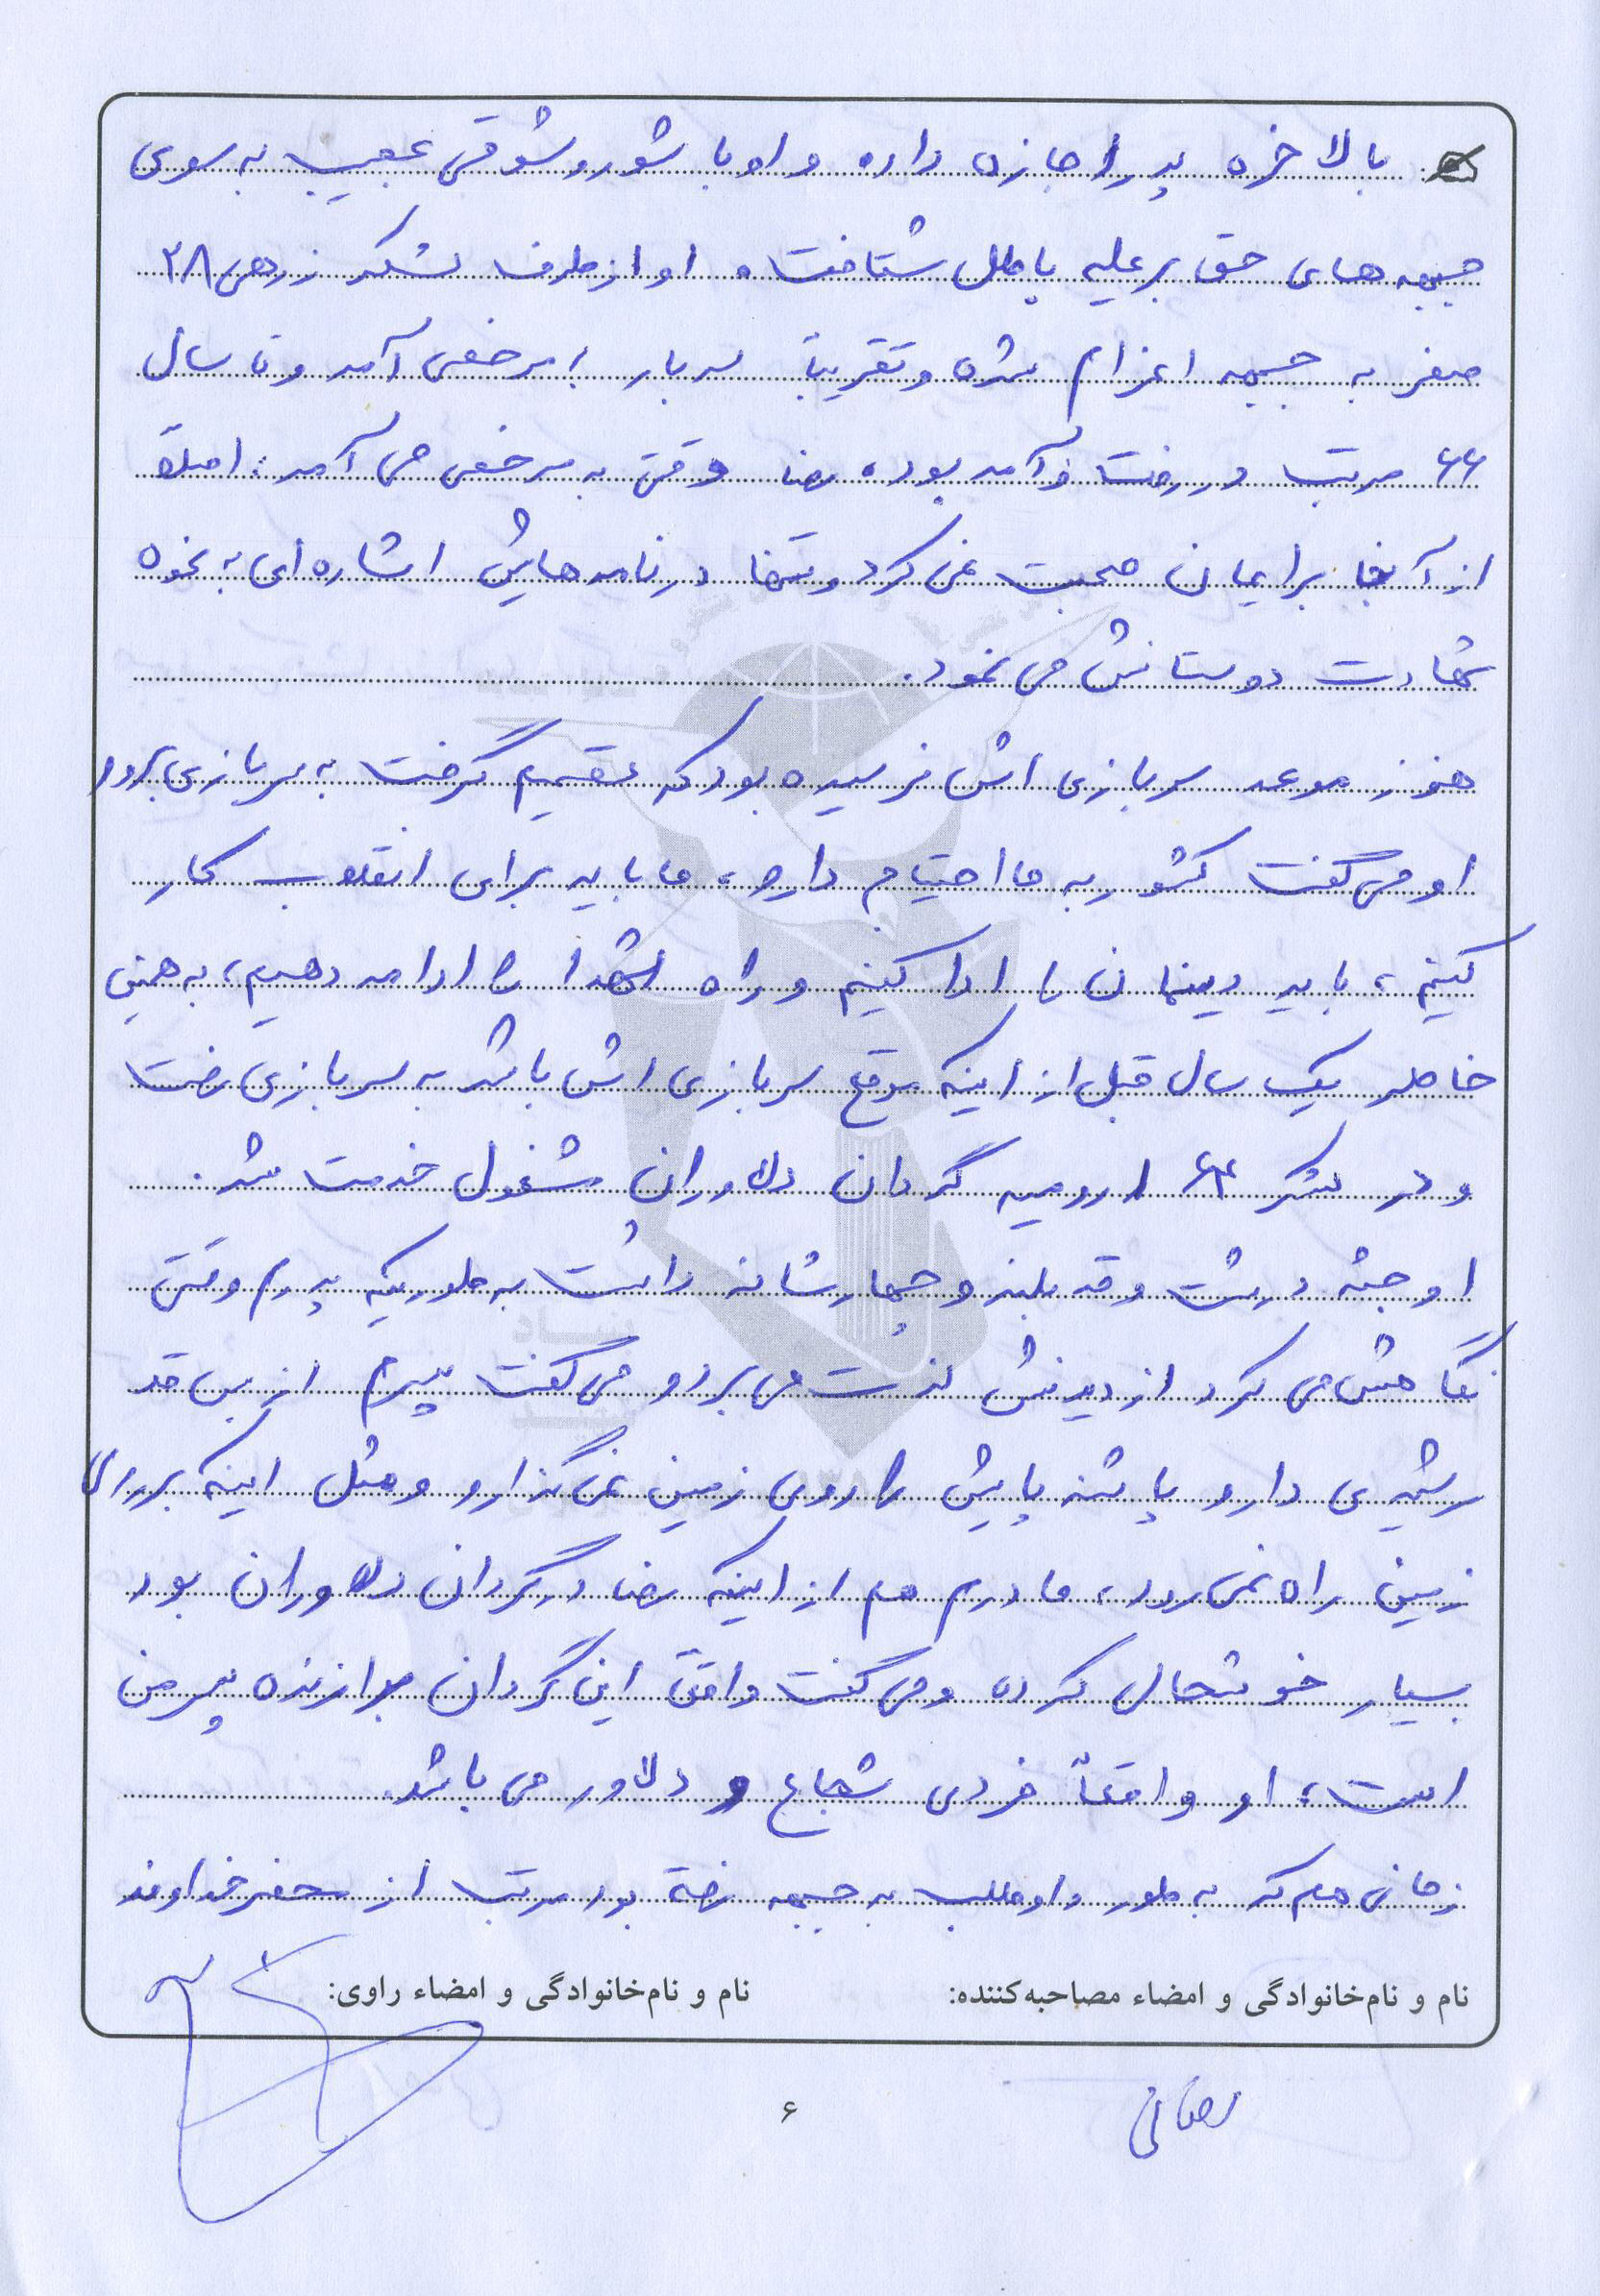 بالاخره پدر اجازه داده و او با شور و شوقی عجیب به سوی
جبهه‌های حق بر علیه باطل شتافت، او از طرف لشکر زرهی ۲۸
صفر به جبهه اعزام شده و تقریباً سه بار به مرخصی آمد و تا سال
۶۶ مرتب در رفت و آمد بود، رضا وقتی به مرخصی می‌آمد، اصلاً
از آنجا برایمان صحبت نمی‌کرد و تنها در نامه‌هایش اشاره‌ای به نحوه
شهادت دوستانش می‌نمود.
هنوز موعد سربازی اش نرسیده بود که تصمیم گرفت به سربازی برود
او می‌گفت کشور به ما احتیاج دارد، ما باید برای انقلاب کار
کنیم، باید دینمان را ادا کنیم و راه شهدا را ادامه دهیم، به همین
خاطر یک سال قبل از اینکه موقع سربازی اش باشد به سربازی رفت
و در لشکر ۶۴ ارومیه گردان دلاوران مشغول خدمت شد.
او جثه درشت و قد بلند و چهارشانه داشت به طوریکه پدرم وقتی
نگاهش می‌کرد از دیدنش لذت می‌برد و می‌گفت پسرم از بس قد
رشیدی دارد پاشنه پایش را روی زمین نمی‌گذارد و مثل اینکه بر روی
زمین راه نمی‌رود، مادرم هم از اینکه رضا در گردان دلاوران بود
بسیار خوشحال کرده و می‌گفت واقعاً این گردان برازنده پسر من
است، او واقعاً فردی شجاع و دلاور می‌باشد.
زمانی هم که به طور داوطلب به جبهه رفته بود مرتب از خداوند
نام و نام‌خانوادگی و امضاء مصاحبه‌کننده: نام و نام‌خانوادگی و امضاء راوی:
۶